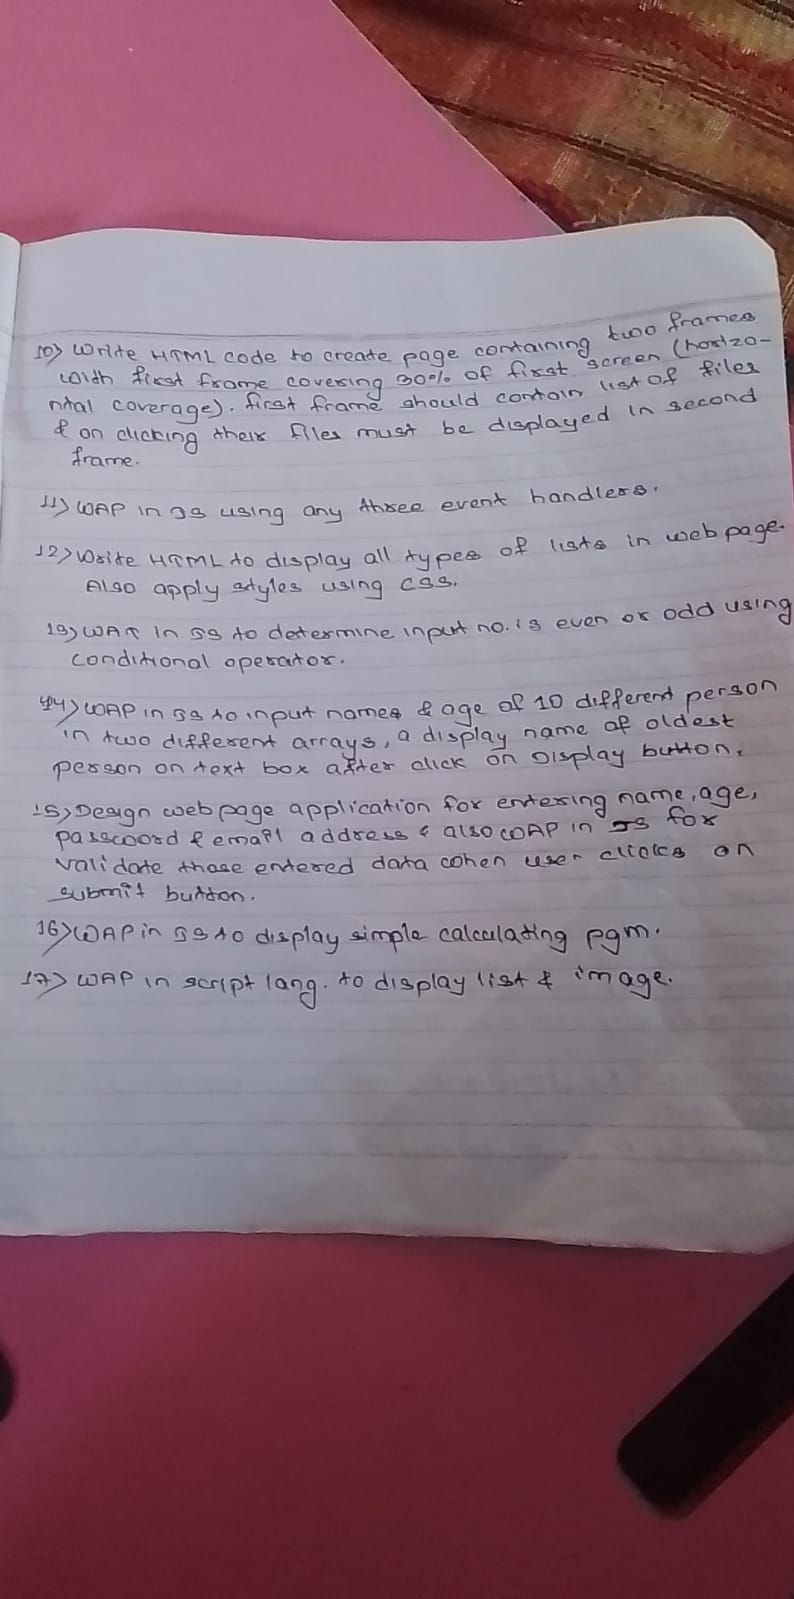 10) Write HTML code to create page containing two frames
with first frame covering 30% of first screen (horizo-
ntal coverage). first frame should contain list of files
& on clicking their files must be displayed in second
frame.
11) WAP in JS using any three event handlers.
12) Write HTML to display all types of lists in web page.
Also apply styles using CSS.
13) WAP in JS to determine input no. is even or odd using
conditional operator.
14) WAP in JS to input names & age of 10 different person
in two different arrays, a display name of oldest
person on text box after click on Display button.
15) Design web page application for entering name, age,
password & email address & also WAP in JS for
validate those entered data when user clicks on
submit button.
16) WAP in JS to display simple calculating pgm.
17) WAP in script lang. to display list & image.